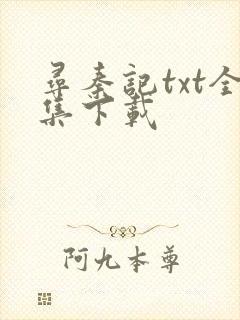 尋秦記txt全
集下載
阿九本尊